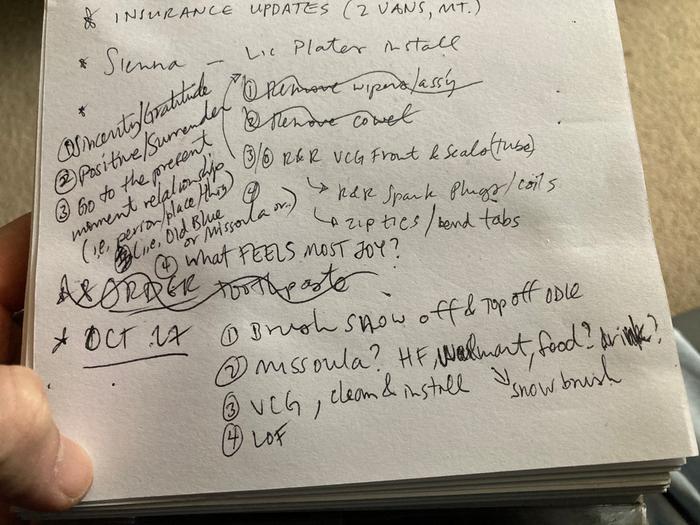 * INSURANCE UPDATES (2 VANS, MT.)
* Sienna - Lic Plates install
*
① Remove wipers/ass'y
② Remove cowel
③/⑥ R&R VCG Front & Seals (tube)
④
↳ R&R Spark Plugs/coils
↳ zip ties/bend tabs
① Sincerity/Gratitude
② Positive/Surrender
③ Go to the present
moment relationship
(i.e, person/place/this)
(i.e, Old Blue
or Missoula or..)
④ what FEELS MOST JOY?
* ORDER toothpaste
* OCT 27
① Brush snow off & top off
② Missoula? HF, Walmart, food? drink?
↓ snow brush
③ VCG, clean & install
④ LOF